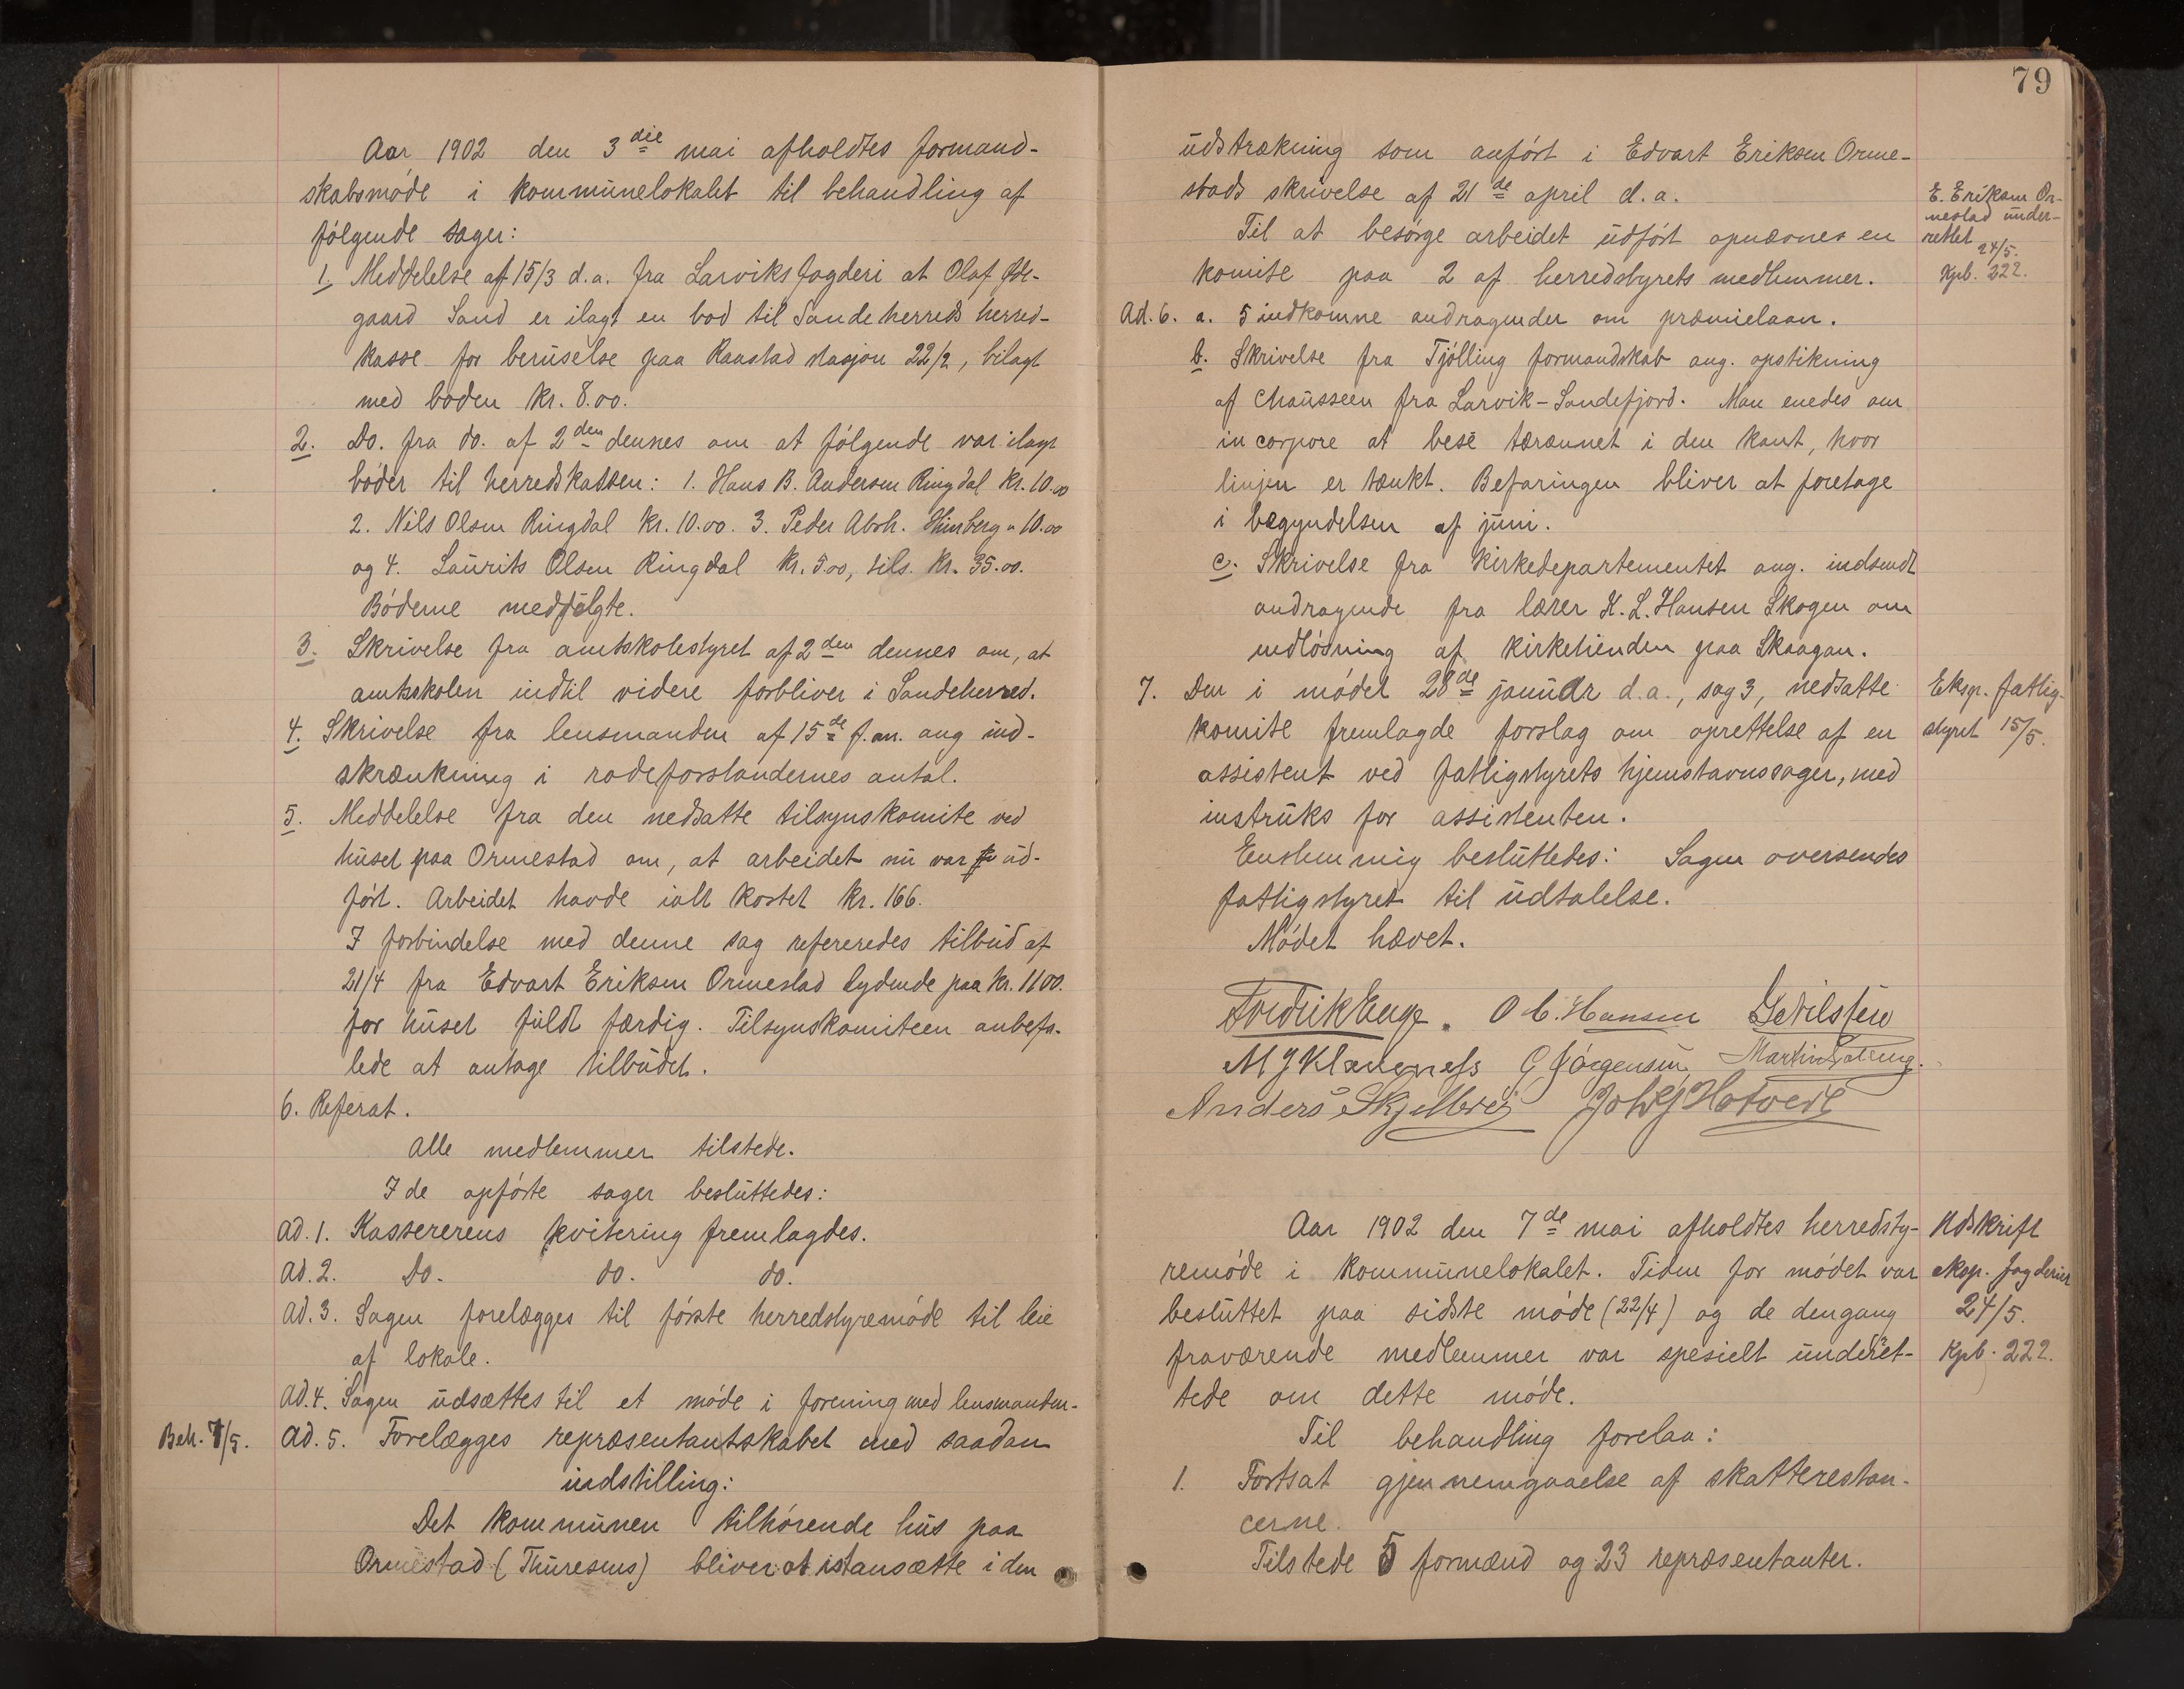 Aar 1902 den 3die mai afholdtes formand-
skabsmøde i kommunelokalet til behandling af
følgende sager:
1. Meddelelse af 15/3 d.a. fra Larviks fogderi at Olaf Øde-
gaard Sand er ilagt en bod til Sandeherreds herred-
kasse for beruselse paa Raastad stasjon 22/2, bilagt
med boden kr. 8.00.
2. Do. fra do. af 2den dennes om at følgende var ilagt
bøder til herredskassen: 1. Hans B. Andersen Ringdal kr. 10.00
2. Nils Olsen Ringdal kr. 10.00. 3. Peder Abrh. Himberg " 10.00
og 4. Laurits Olsen Ringdal kr. 5.00, tils. kr. 35.00.
Bøderne medfølgte.
3. Skrivelse fra amtskolestyret af 2den dennes om, at
amtsskolen indtil videre forbliver i Sandeherred.
4. Skrivelse fra lensmanden af 15de f.m. ang ind-
skrænkning i rodeforstandernes antal.
5. Meddelelse fra den nedsatte tilsynskomite ved
huset paa Ormestad om, at arbeidet nu var ud-
ført. Arbeidet havde ialt kostet kr. 166.
I forbindelse med denne sag refereredes tilbud af
21/4 fra Edvart Eriksen Ormestad lydende paa kr. 1100.
for huset fuldt færdig. Tilsynskomiteen anbefa-
lede at antage tilbudet.
6. Referat.
Alle medlemmer tilstede.
I de opførte sager besluttedes:
Ad. 1. Kassererens kvitering fremlagdes.
Ad. 2. Do. do. do.
Ad. 3. Sagen forelægges til første herredstyremøde til leie
af lokale.
Ad. 4. Sagen udsættes til et møde i forening med lensmanden.
Beh. 7/5. Ad. 5. Forelægges repræsentantskabet med saadan
indstilling:
Det kommunen tilhørende hus paa
Ormestad (Thuresens) bliver at istansætte i den
79
udstrækning som anført i Edvart Eriksen Orme-
stads skrivelse af 21de april d.a.
E. Eriksen Or-
mestad under-
rettet 24/5.
Kpb. 222.
Til at besørge arbeidet udført opnævnes en
komite paa 2 af herredstyrets medlemmer.
Ad. 6. a. 5 indkomne andragender om præmielaan.
b. Skrivelse fra Tjølling formandskab ang. opstikning
af chausseen fra Larvik-Sandefjord. Man enedes om
in corpore at besé terænnet i den kant, hvor
linjen er tænkt. Befaringen bliver at foretage
i begyndelsen af juni.
c. Skrivelse fra Kirkedepartementet ang. indsendt
andragende fra lærer K. L. Hansen Skogen om
indløsning af kirketienden paa Skaagan.
7. Den i mødet 28de januar d.a., sag 3, nedsatte
komite fremlagde forslag om oprettelse af en
assistent ved fattigstyrets hjemstavnssager, med
instruks for assistenten.
Eksp. fattig-
styret 15/5.
Enstemmig besluttedes: Sagen oversendes
fattigstyret til udtalelse.
Mødet hævet.
Fredrik Enge. O C. Hansen
M J Klaveness G Jørgensen
Anders Skjelbrei
Aar 1902 den 7de mai afholdtes herredsty-
remøde i kommunelokalet. Tiden for mødet var
besluttet paa sidste møde (22/4) og de dengang
fraværende medlemmer var spesielt underet-
tede om dette møde.
Udskrift
eksp. fogderiet
24/5.
Kpb. 222.
Til behandling forelaa:
1. Fortsat gjennemgaaelse af skatterestan-
cerne.
Tilstede 5 formænd og 23 repræsentanter.